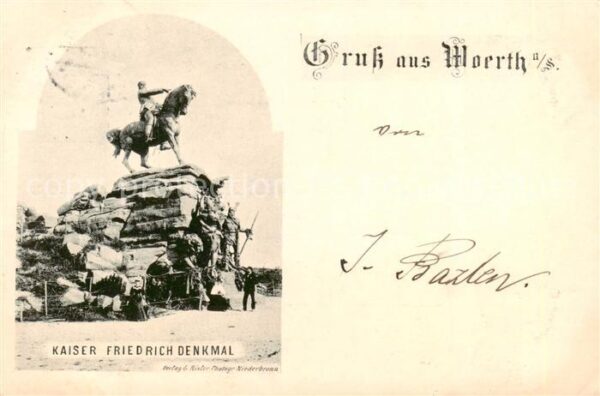 Gruß aus Woerth a/S.
von
J.
KAISER FRIEDRICH DENKMAL
Verlag Photogr. Niederbronn